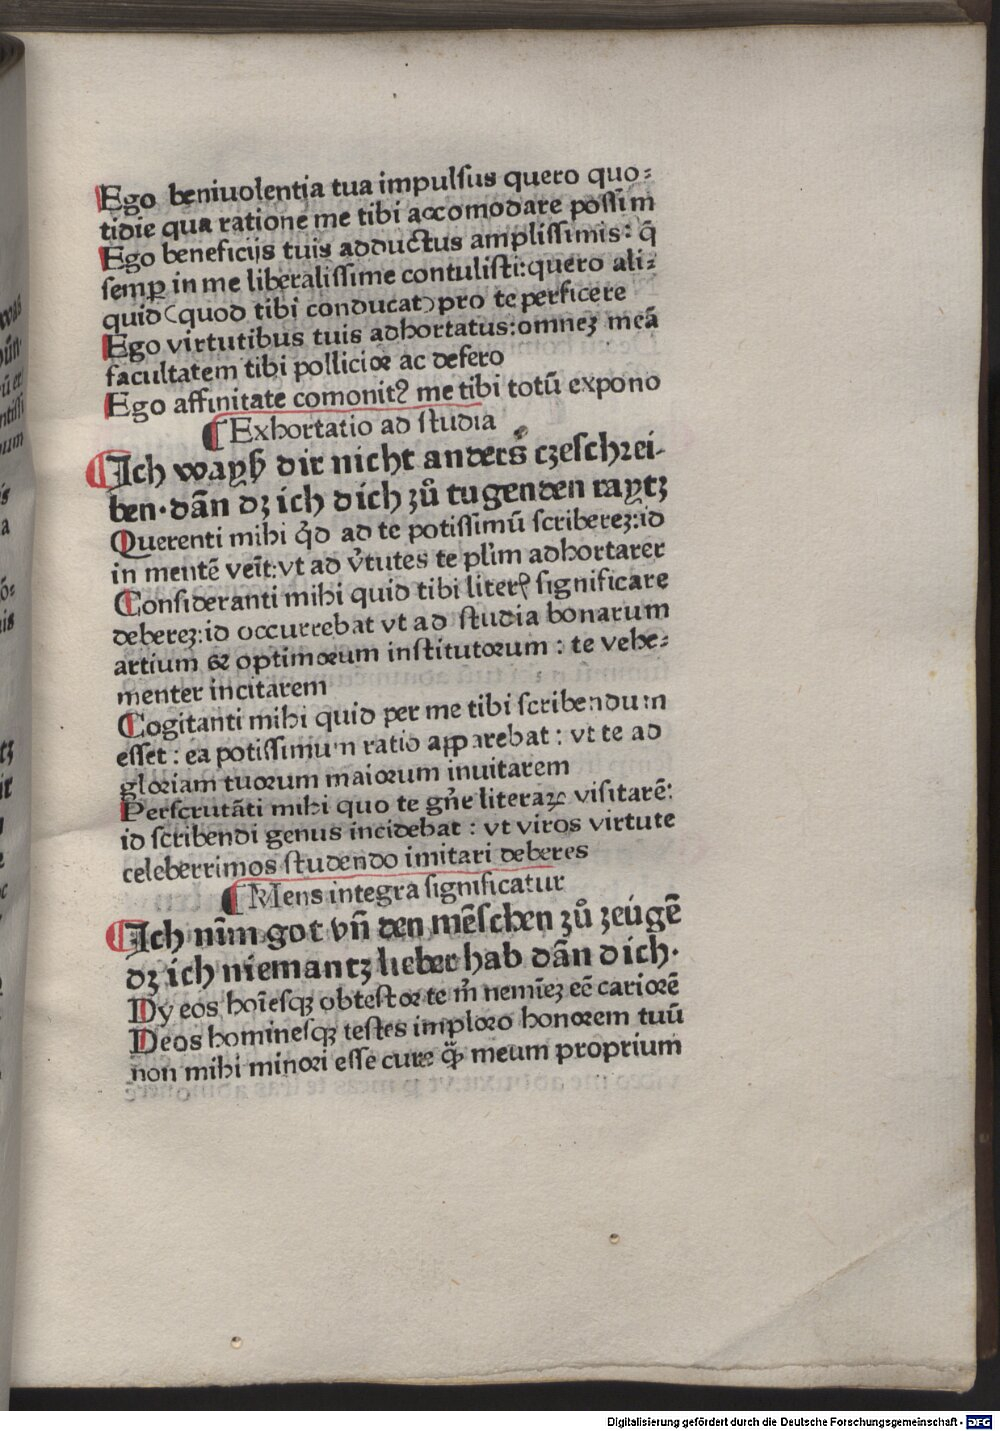 Ego beniuolentia tua impulsus quero quo⸗
tidie qua ratione me tibi accomodare possim
Ego beneficijs tuis adductus amplissimis: q̄
semꝑ in me liberalissime contulisti: quero ali⸗
quid (quod tibi conducat) pro te perficere
Ego virtutibus tuis adhortatus: omneꝫ meā
facultatem tibi pollicior ac defero
Ego affinitate comonitꝰ me tibi totū expono
¶ Exhortatio ad studia
¶ Ich wayß dir nicht anders czeschrei-
ben. dān dꝫ ich dich zů tugenden raytꝫ
Querenti mihi qͥd ad te potissimū scribereꝫ: id
in mentē veīt: vt ad v̓tutes te pl̓im adhortarer
Consideranti mihi quid tibi literꝭ significare
debereꝫ: id occurrebat vt ad studia bonarum
artium ⁊ optimorum institutorum : te vehe⸗
menter incitarem
Cogitanti mihi quid per me tibi scribendum
esset : ea potissimum ratio apparebat : vt te ad
gloriam tuorum maiorum inuitarem
Perscrutāti mihi quo te gn̄e literaꝝ visitarē:
id scribendi genus incidebat : vt viros virtute
celeberrimos studendo imitari deberes
¶ Mens integra significatur
¶ Ich nim̄ got vn̄ den mēschen zů zeúgē
dꝫ ich niemantꝫ lieber hab dān dich.
Dy eos hoīesqꝫ obtestor te m̓ nemīeꝫ eē cariorē
Deos hominesqꝫ testes imploro honorem tuū
non mihi minori esse cure qꝫ̄ meum proprium
Digitalisierung gefördert durch die Deutsche Forschungsgemeinschaft - DFG